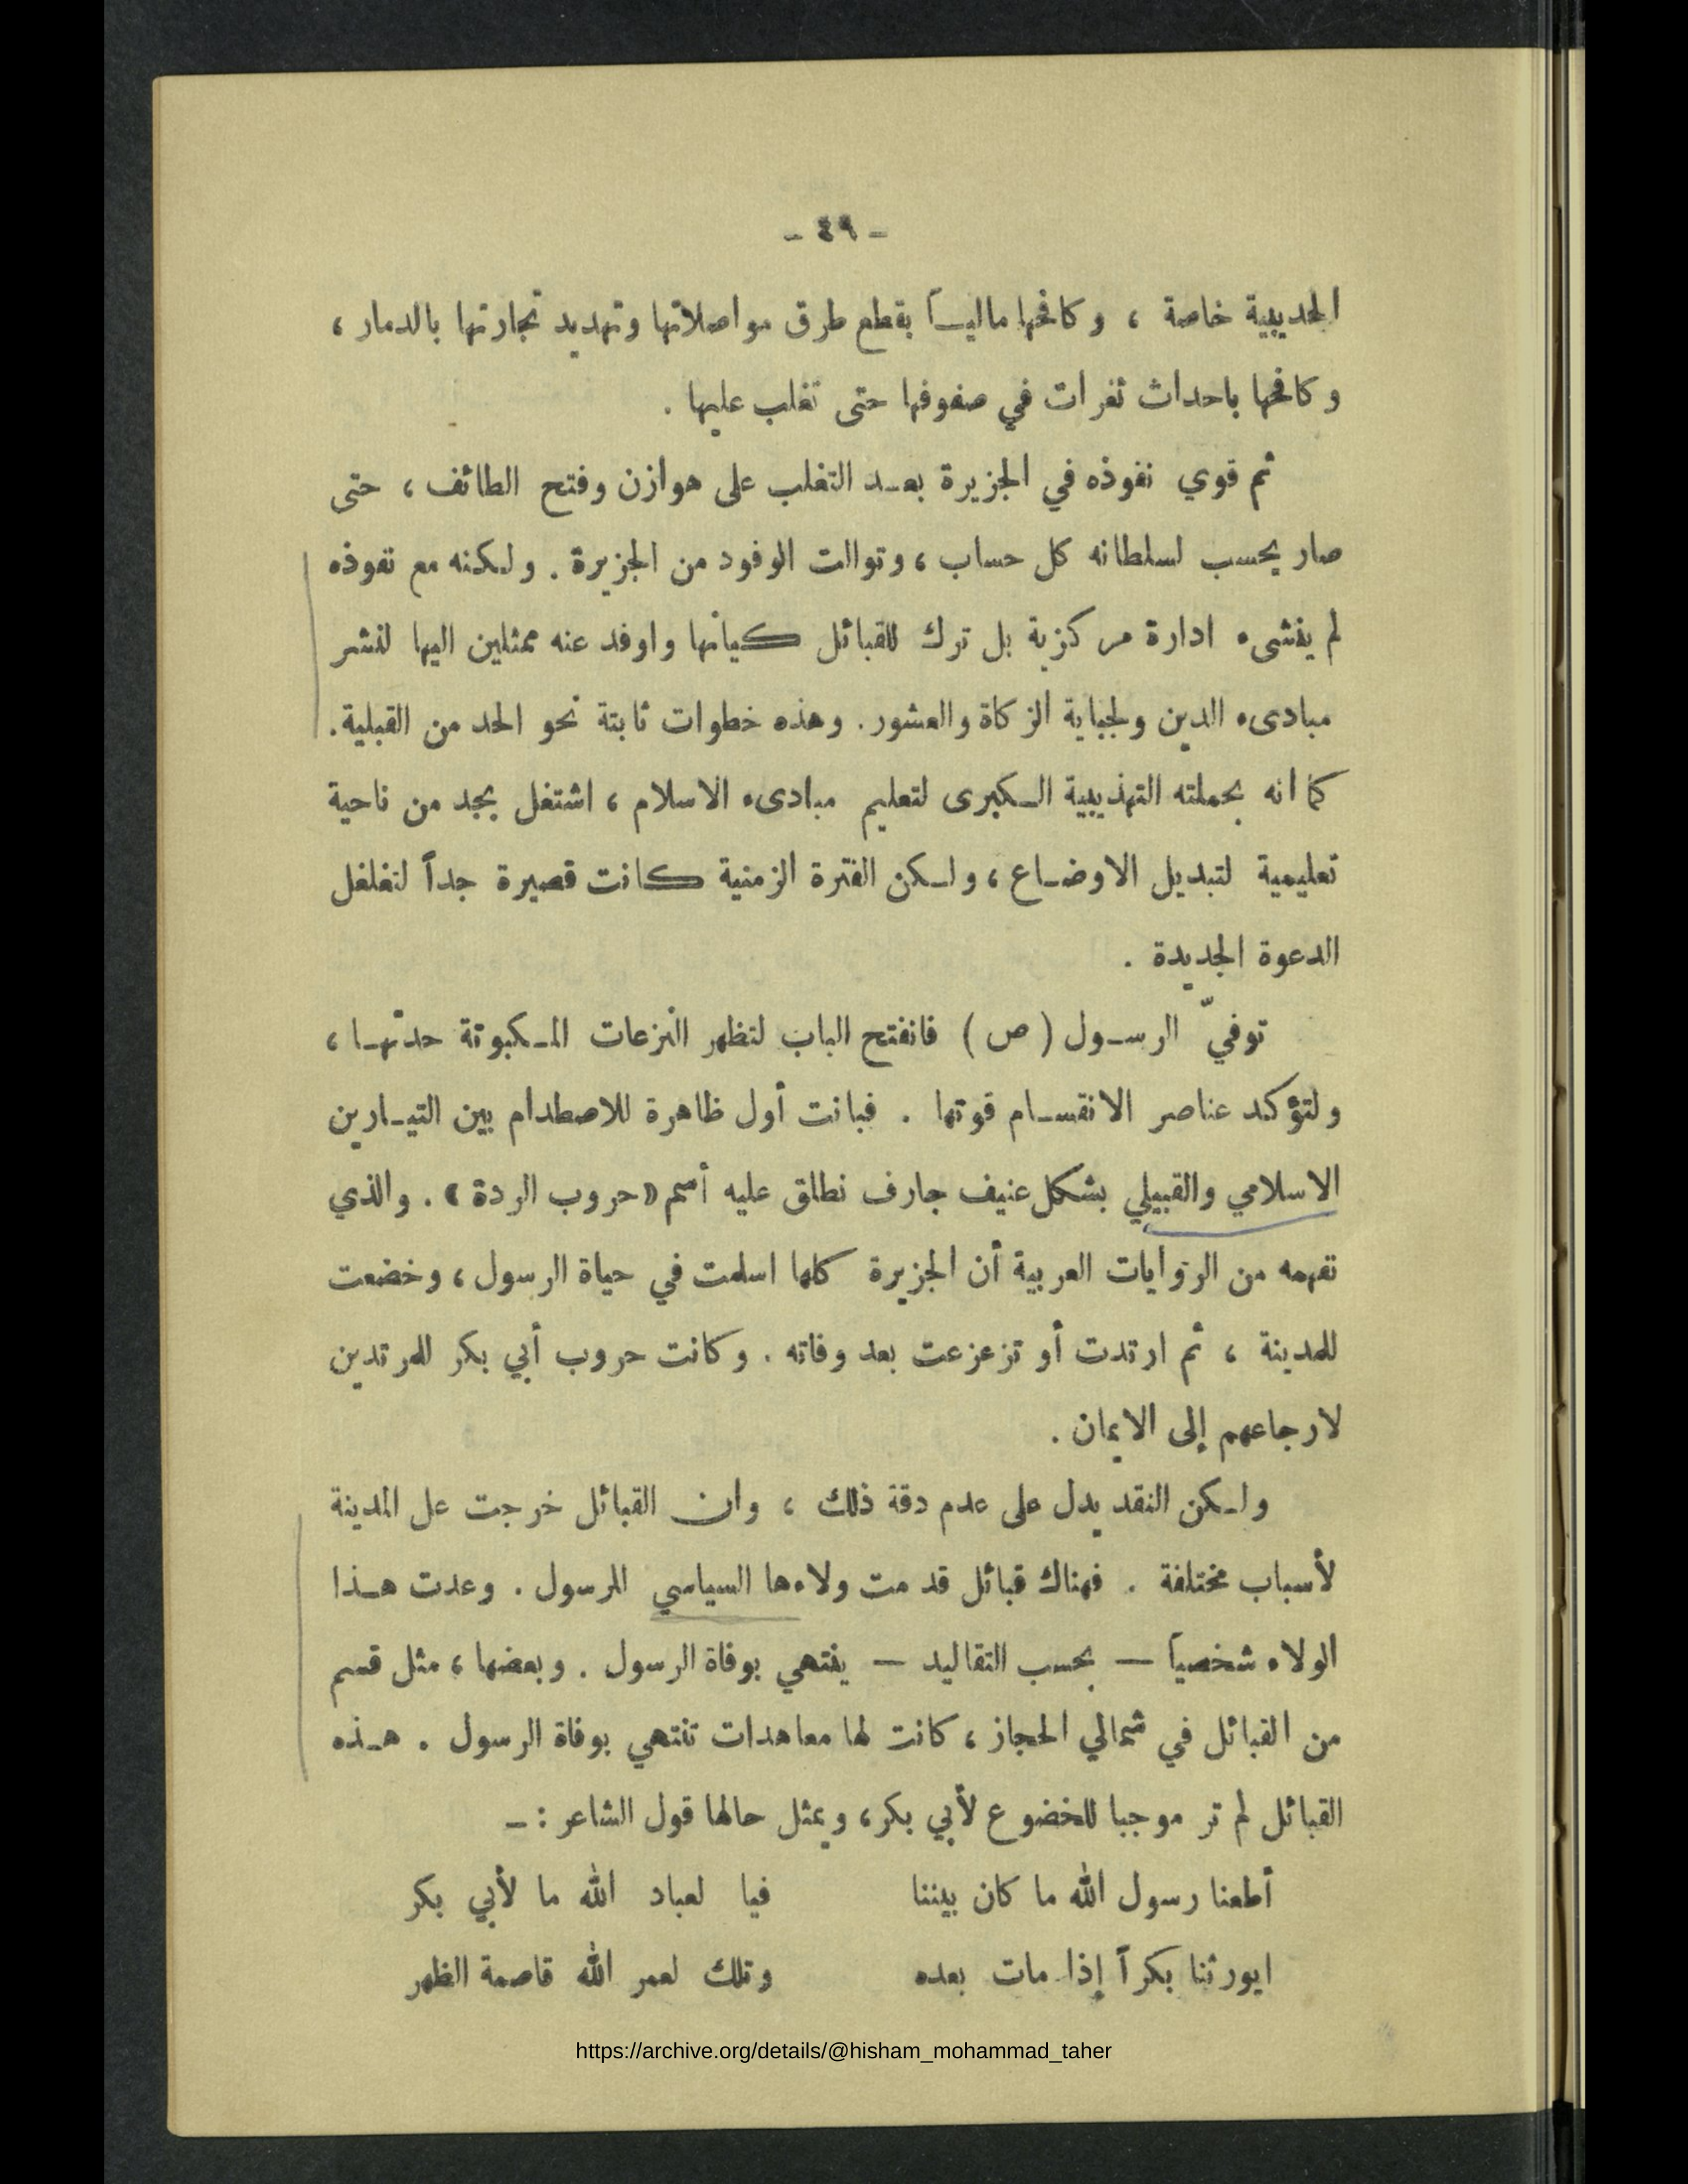 - ٤٩ -
الحديبية خاصة ، وكافحها مالياً بقطع طرق مواصلاتها وتهديد تجارتها بالدمار ،
وكافحها باحداث ثغرات في صفوفها حتى تغلب عليها .
ثم قوي نفوذه في الجزيرة بعد التغلب على هوازن وفتح الطائف ، حتى
صار يحسب لسلطانه كل حساب ، وتوالت الوفود من الجزيرة . ولكنه مع نفوذه
لم ينشىء ادارة مركزية بل ترك للقبائل كيانها واوفد عنه ممثلين اليها لنشر
مبادىء الدين ولجباية الزكاة والعشور . وهذه خطوات ثابتة نحو الحد من القبلية.
كما انه بحملته التهذيبية الكبرى لتعليم مبادىء الاسلام ، اشتغل بجد من ناحية
تعليمية لتبديل الاوضاع ، ولكن الفترة الزمنية كانت قصيرة جداً لتغلغل
الدعوة الجديدة .
توفيّ الرسول ( ص ) فانفتح الباب لتظهر النزعات المكبوتة حدتها ،
ولتؤكد عناصر الانقسام قوتها . فبانت أول ظاهرة للاصطدام بين التيارين
الاسلامي والقبيلي بشكل عنيف جارف نطلق عليه أسم «حروب الردة» . والذي
نفهمه من الروايات العربية أن الجزيرة كلها اسلمت في حياة الرسول ، وخضعت
للمدينة ، ثم ارتدت أو تزعزعت بعد وفاته . وكانت حروب أبي بكر للمرتدين
لارجاعهم إلى الايمان .
ولكن النقد يدل على عدم دقة ذلك ، وان القبائل خرجت على المدينة
لأسباب مختلفة . فهناك قبائل قدمت ولاءها السياسي للرسول . وعدت هذا
الولاء شخصياً — بحسب التقاليد — ينتهي بوفاة الرسول . وبعضها ، مثل قسم
من القبائل في شمالي الحجاز ، كانت لها معاهدات تنتهي بوفاة الرسول . هذه
القبائل لم تر موجبا للخضوع لأبي بكر ، ويمثل حالها قول الشاعر : -
أطعنا رسول الله ما كان بيننا فيا لعباد الله ما لأبي بكر
ايورثنا بكراً إذا مات بعده وتلك لعمر الله قاصمة الظهر
https://archive.org/details/@hisham_mohammad_taher